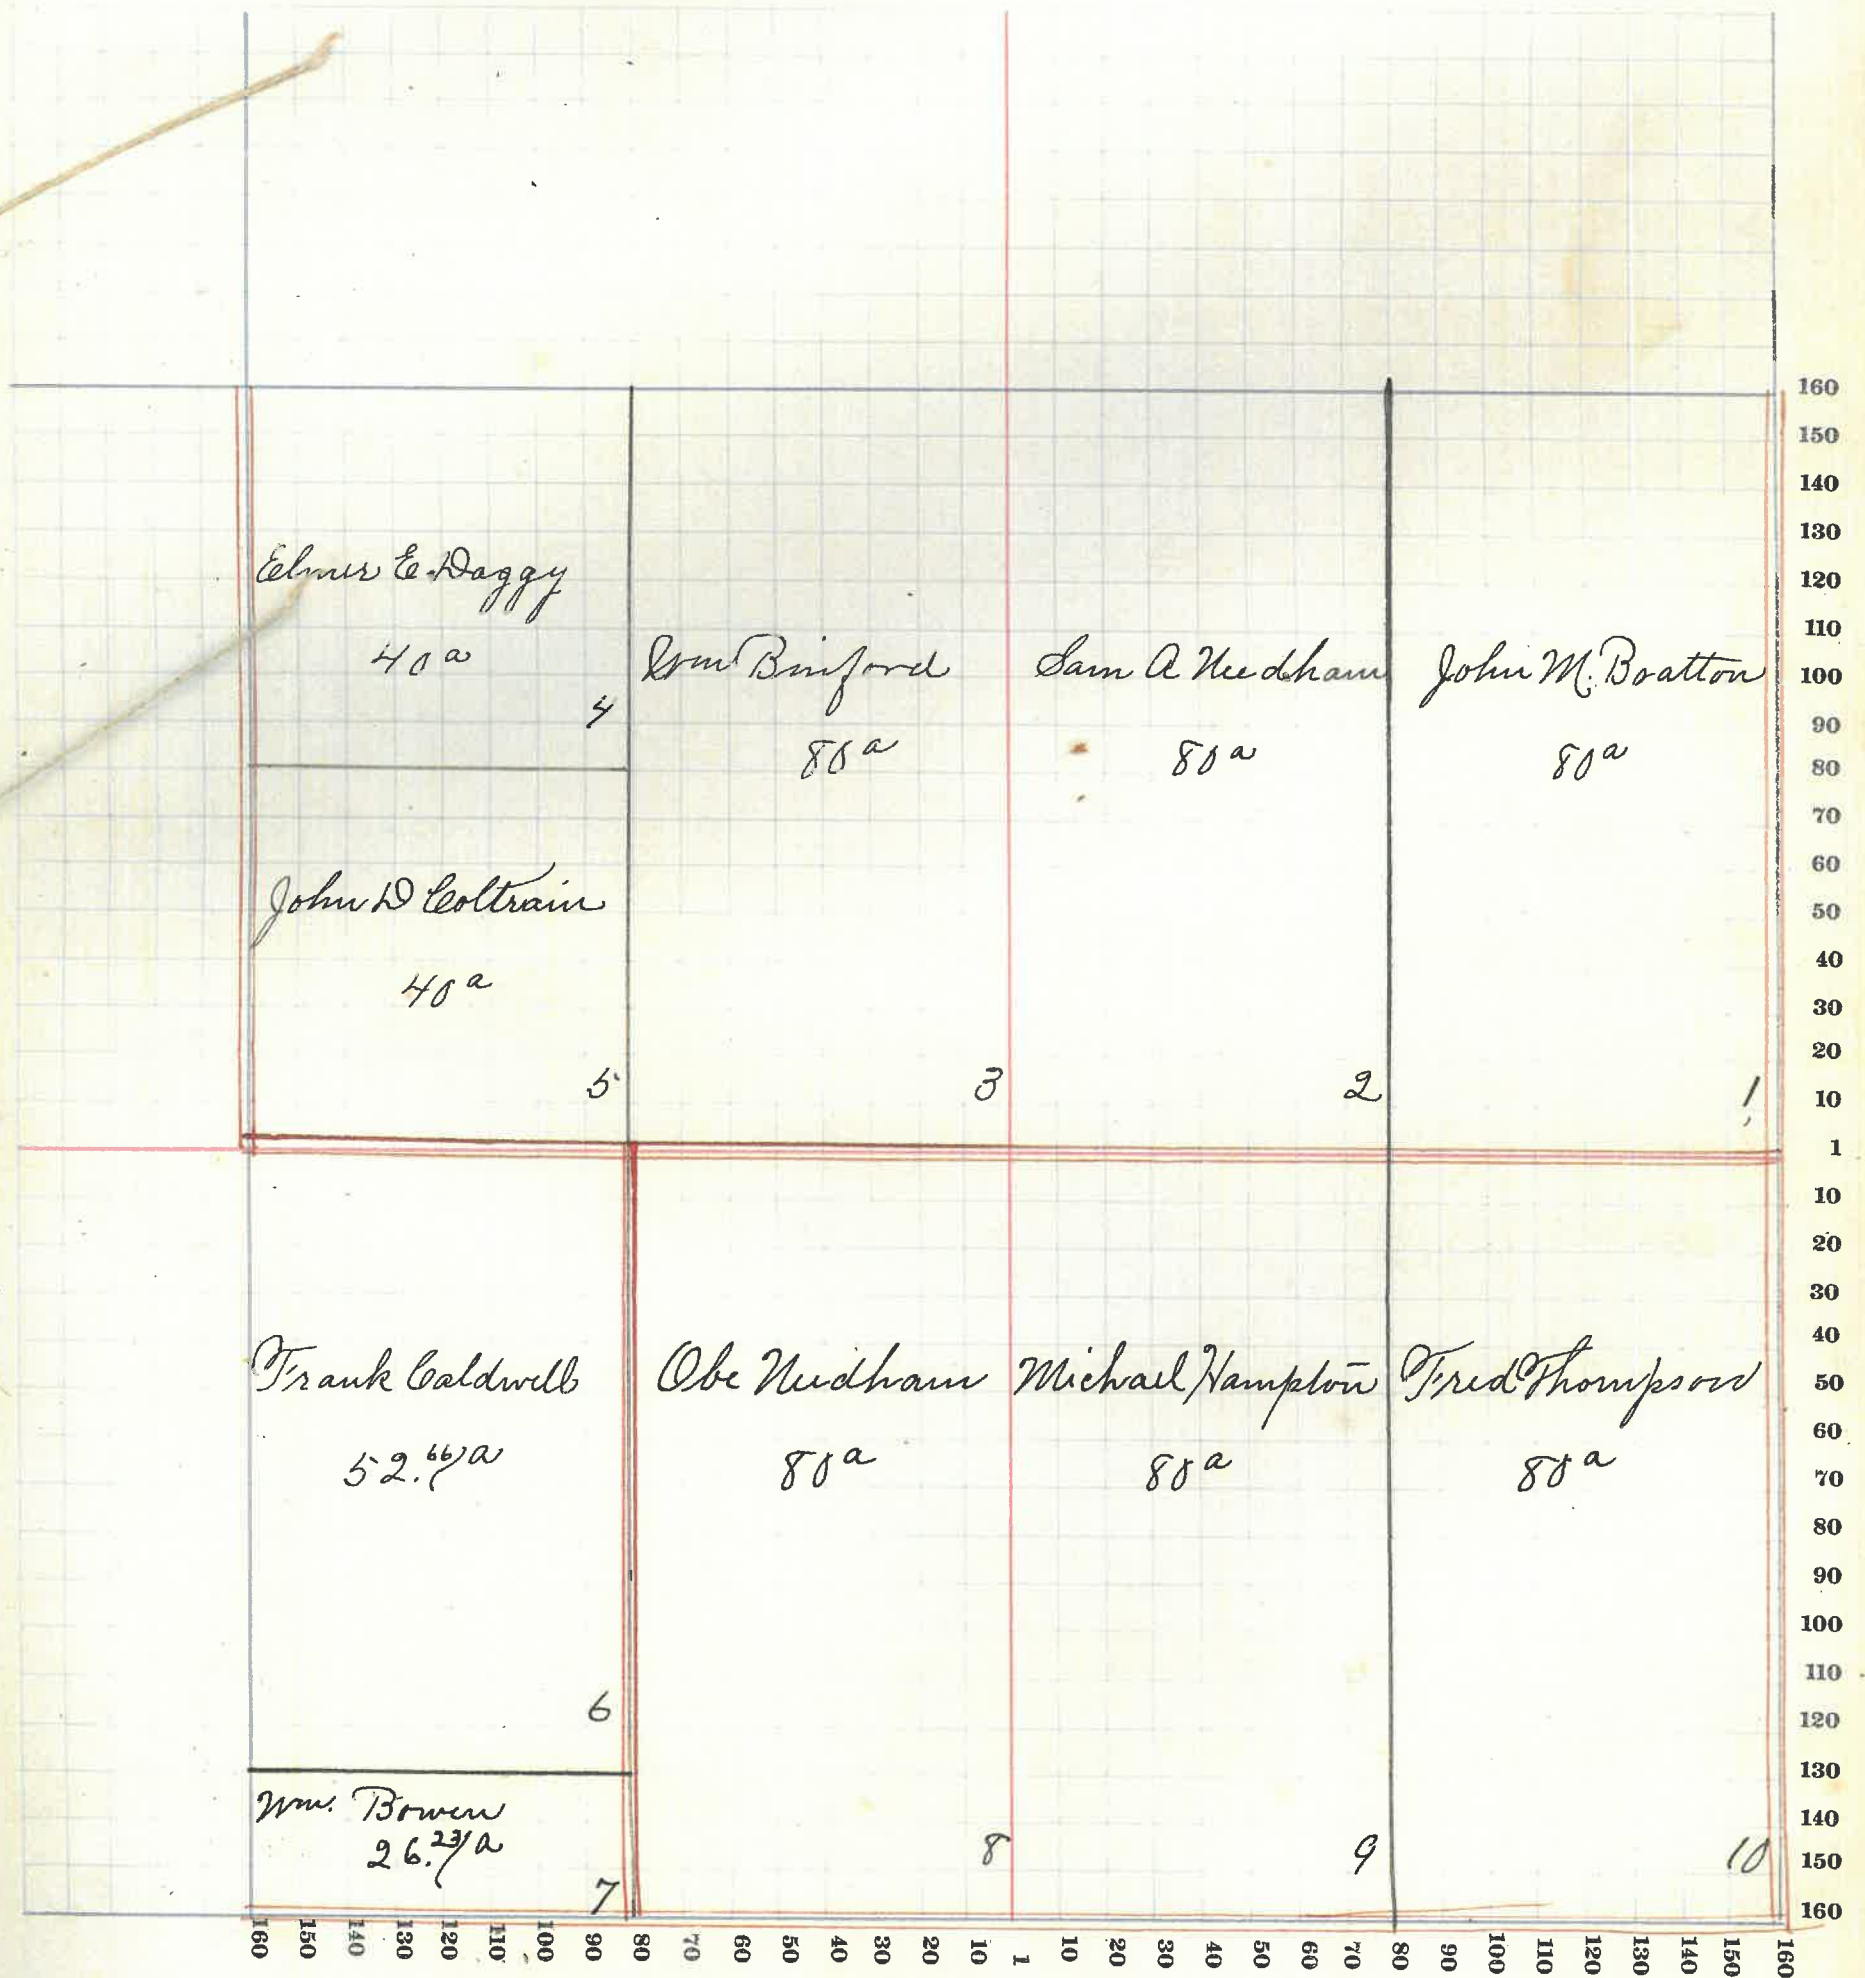 Elmer E. Daggy
40 a
4
Wm Binford
80 a
3
Sam A Needham
80 a
2
John M. Bratton
80 a
1
John D Coltrain
40 a
5
Frank Caldwell
52.66 a
6
Obe Needham
80 a
8
Michael Hampton
80 a
9
Fred Thompson
80 a
10
Wm. Bowen
26.23 a
7
160
150
140
130
120
110
100
90
80
70
60
50
40
30
20
10
1
10
20
30
40
50
60
70
80
90
100
110
120
130
140
150
160
160 150 140 130 120 110 100 90 80 70 60 50 40 30 20 10 1 10 20 30 40 50 60 70 80 90 100 110 120 130 140 150 160